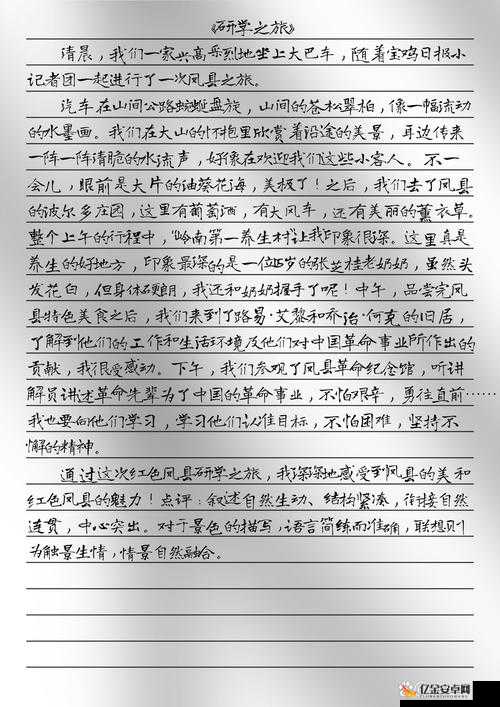 《研学之旅》
清晨，我们一家兴高采烈地坐上大巴车，随着宝鸡日报小
记者团一起进行了一次凤县之旅。
汽车在山间公路蜿蜒盘旋，山间的苍松翠柏，像一幅流动
的水墨画。我们在大山的怀抱里欣赏着沿途的美景，耳边传来
一阵一阵清脆的水流声，好像在欢迎我们这些小客人。不一
会儿，眼前是大片的油葵花海，美极了！之后，我们去了凤县
的波尔多庄园，这里有葡萄酒，有大风车，还有美丽的薰衣草。
整个上午的行程中，“岭南第一养生村”让我印象很深。这里真是
养生的好地方，印象最深的是一位岁的张芝桂老奶奶，虽然头
发花白，但身体硬朗，我还和奶奶握手了呢！中午，品尝完凤
县特色美食之后，我们来到了路易·艾黎和乔治·何克的旧居，
了解到他们的工作和生活环境及他们对中国革命事业所作出的
贡献，我很受感动。下午，我们参观了凤县革命纪念馆，听讲
解员讲述革命先辈为了中国的革命事业，不怕艰辛，勇往直前……
我也要向他们学习，学习他们认准目标，不怕困难，坚持不
懈的精神。
通过这次红色凤县研学之旅，我深深地感受到凤县的美和
红色凤县的魅力！点评：叙述自然生动、结构紧凑，衔接自然
连贯，中心突出。对于景色的描写，语言简练而准确，联想则
为触景生情，情景自然融合。
亿金安卓网